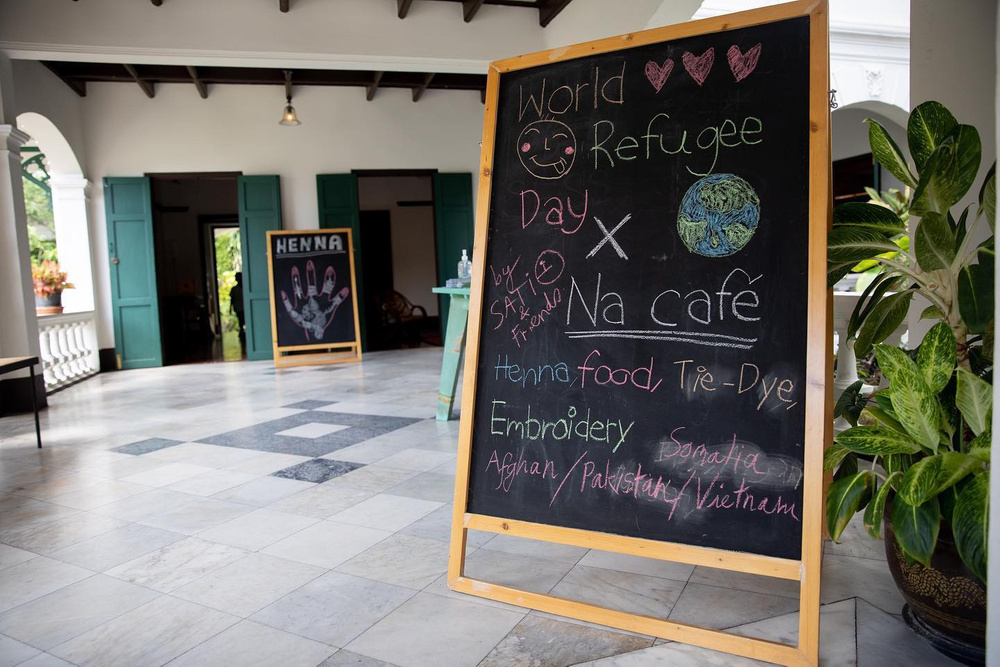 World
Refugee
Day X
by
SATI
&
Friends
Na café
Henna, food, Tie-Dye,
Embroidery
Somalia
Afghan/Pakistan/Vietnam
HENNA